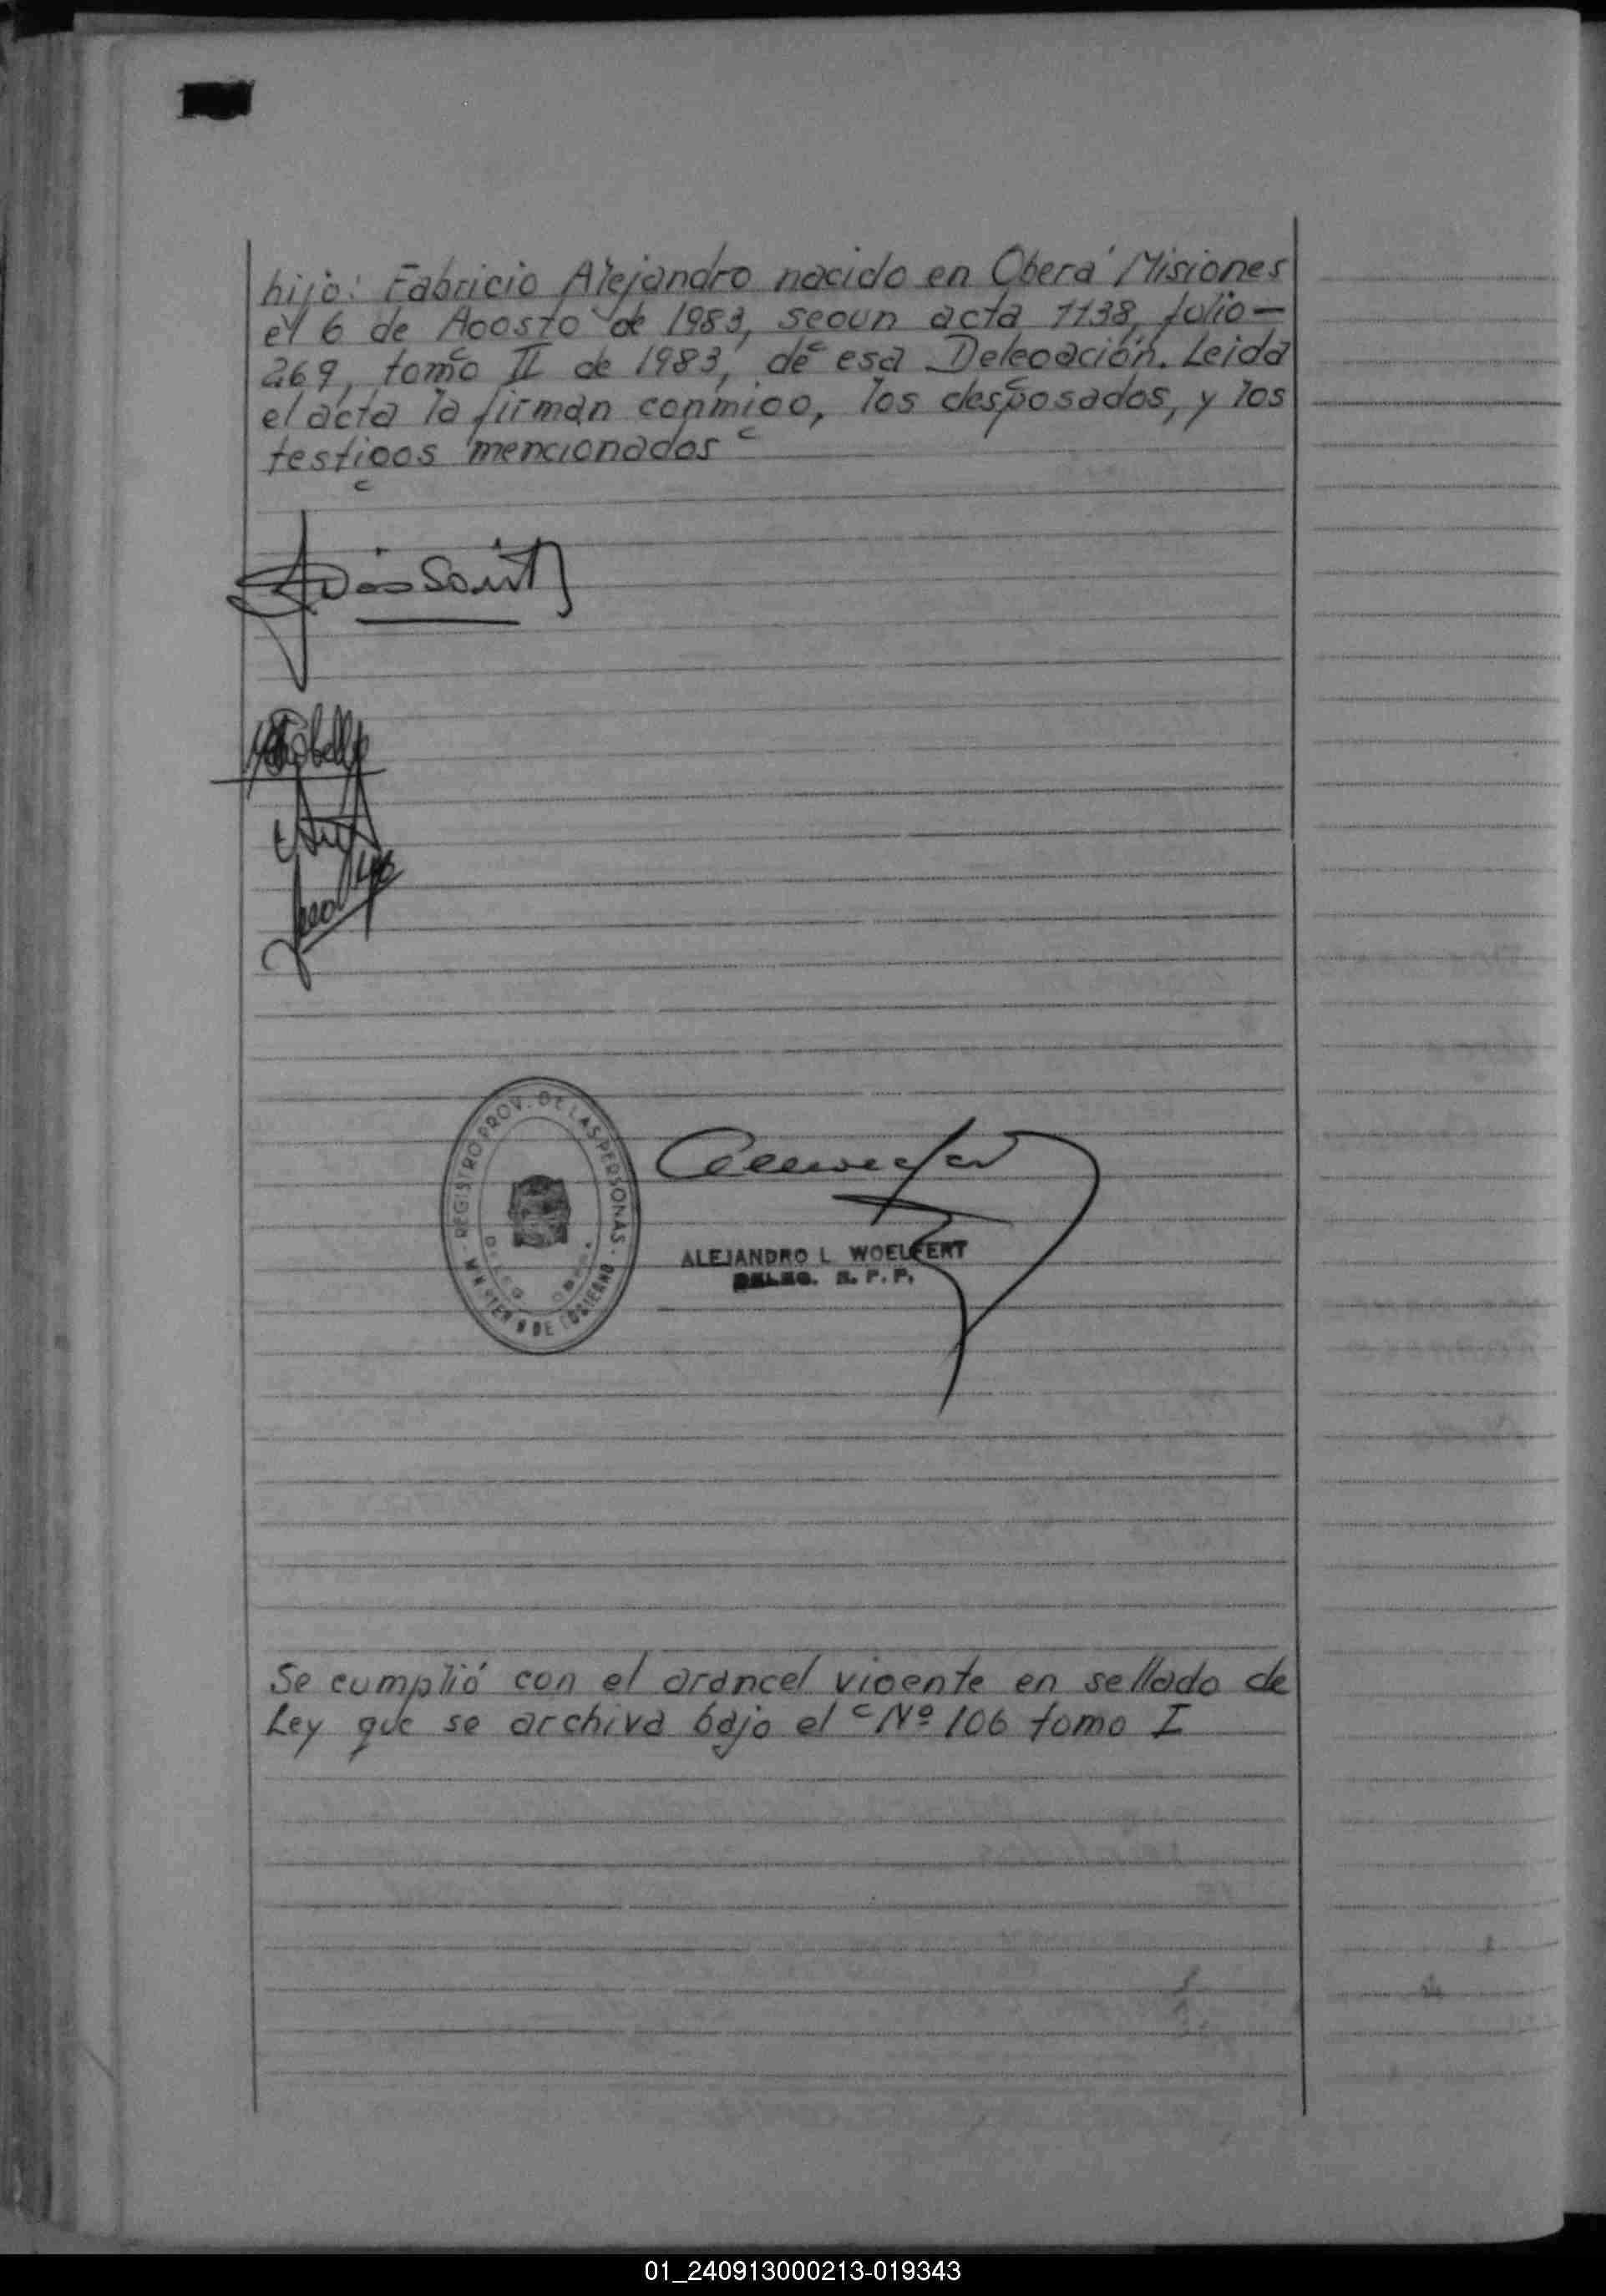 hijo: Fabricio Alejandro nacido en Oberá Misiones
el 6 de Agosto de 1983, segun acta 1138, folio—
269, tomo II de 1983, de esa Delegación. Leida
el acta la firman conmigo, los desposados, y los
testigos mencionados
REGISTRO PROV. DE LAS PERSONAS - MINISTERIO DE GOBIERNO
DELEG OBERA
ALEJANDRO L WOELFERT
DELEG. R. P. P.
Se cumplió con el arancel vigente en sellado de
Ley que se archiva bajo el Nº 106 tomo I
01_240913000213-019343